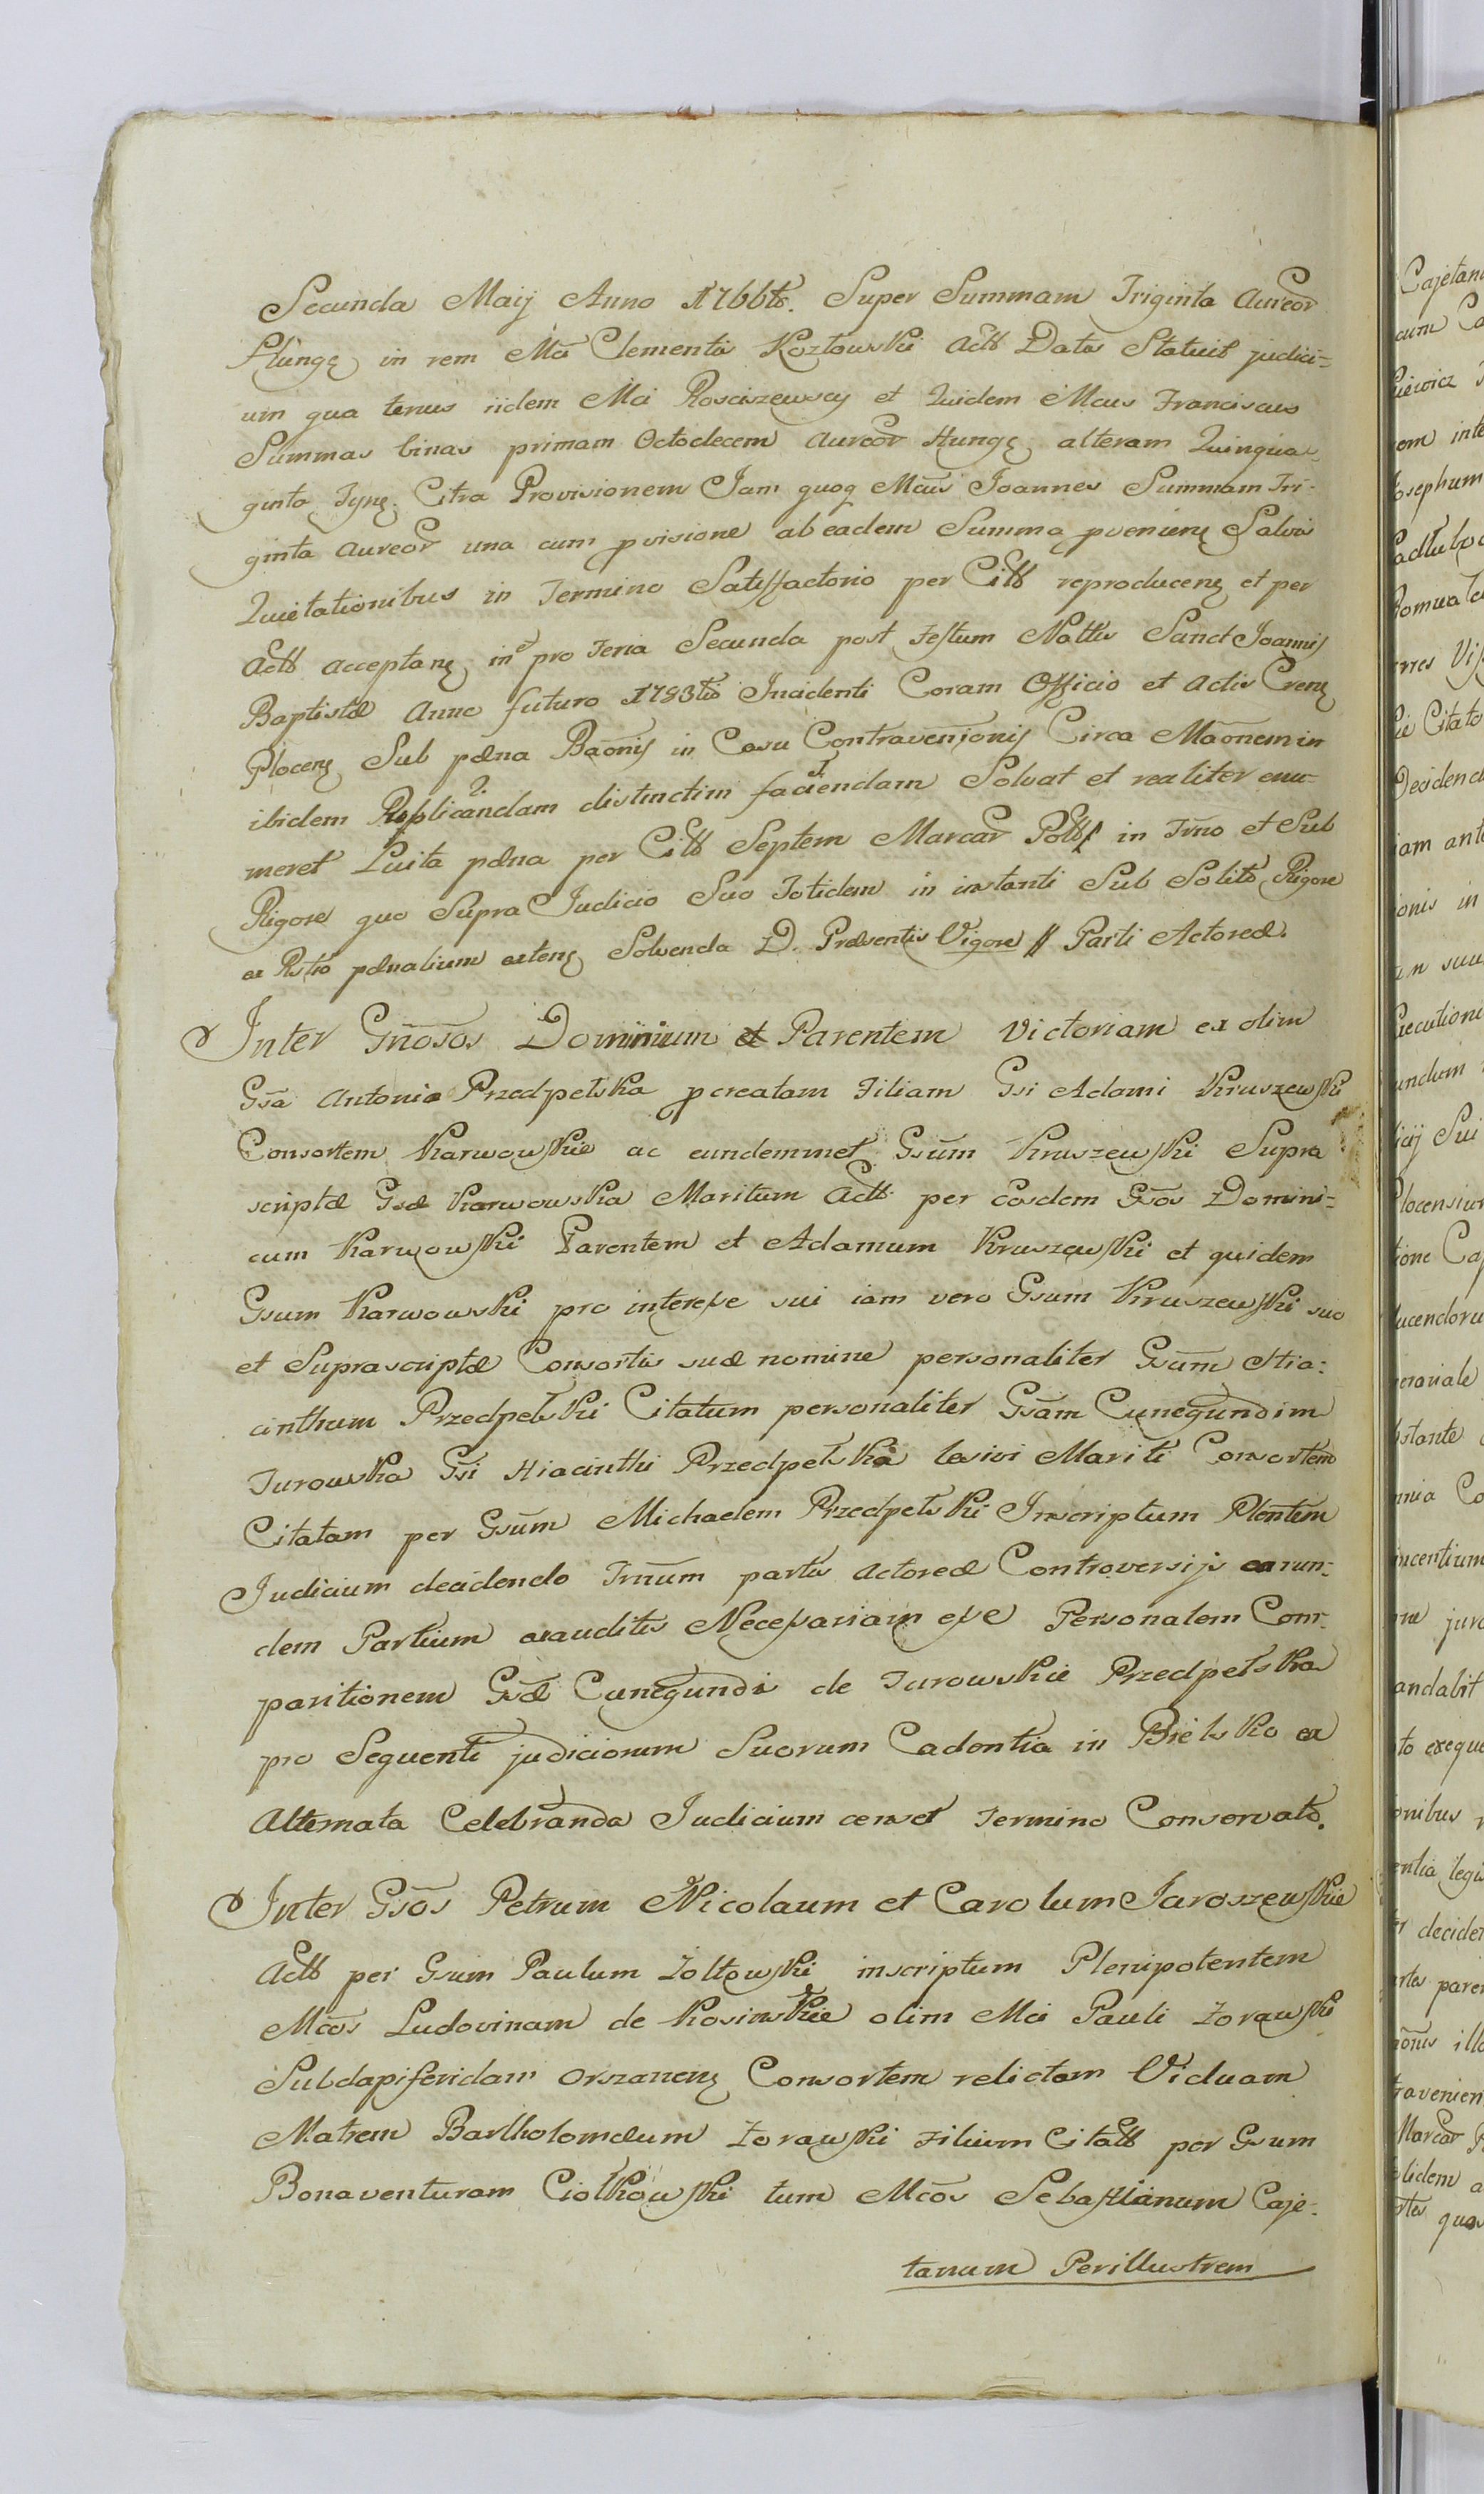 Secunda Maij Anno 1766to. Super Summam Triginta Aureor
Hunge in rem Mci Clementis Kozłowski Actt Datas Statuit judici=
um qua tenus iidem Mci Rosciszewscy et Quidem Mcus Franciscus
Summas binas primam Octodecem Aureor Hung alteram Quinqua-
ginta Tyn. Citra Provisionem Iam quoq Mcus Ioannes Summam Tri-
ginta Aureor una cum pvisione ab eadem Summa pvenien Salvis
Quietationibus in Termino Satisfactorio per Citt reproducen et per
Actt acceptan in pro Feria Secunda post Festum Nattis Sancti Joannis
Baptistæ Anno futuro 1783tio Incidenti Coram Officio et Actis Cren
Plocen Sub pæna Baonis in Casu Contravenionis Circa Maonem in
ibidem Replicandam distinctim faciendam Solvat et realiter enu-
meret Luita pæna per Citt Septem Marcar Poll in Trno et Sub
Rigore quo Supra Iudicio Suo Totidem in instanti Sub Solito Rigore
ex Rstro pænalium exten Solvenda D. Præsentis Vigore // Parti Actoreæ.
Inter Gnosos Dominium et Parentem Victoriam ex olim
Gsa Antonia Przedpełska pcreatam Filiam Gsi Adami Kruszewski
Consortem Karwowskie ac eundemmet Gsum Kruszewski Supra
scriptæ Gsæ Karwowska Maritum Actt per Eosdem Gsos Domini=
cum Karwowski Parentem et Adamum Kruszewski et quidem
Gsum Karwowski pro interesse sui iam vero Gsum Kruszewski suo
et Suprascriptæ Consortis suæ nomine personaliter Gsum Hia:
cinthum Przedpełski Citatum personaliter Gsam Cunegundim
Turowska Gsi Hiacinthi Przedpełska Mariti Consortem
Citatam per Gsum Michaelem Przedpełski Inscriptum Plentem
Iudicium decidendo Trnum partis Actoreæ Controversijs earun-
dem Partium exauditis Necessariam esse Personalem Com-
paritionem Gsæ Cunegundis de Turowskie Przedpełska
pro Sequenti judiciorum Suorum Cadentia in Bielsko ex
Alternata Celebranda Iudicium censet Termino Conservato.
Inter Gsos Petrum Nicolaum et Carolum Jaroszewskie
Actt per Gsum Paulum Zołtowski inscriptum Plenipotentem
Mcos Ludovinam de Kosinskie olim Mci Pauli Zorawski
Subdapiferidam Orszanen Consortem relictam Viduam
Matrem Bartholomæum Zorawski Filium Citatt per Gsum
Bonaventuram Ciołkowski tum Mcos Sebastianum Caje-
tanum Perillustrem